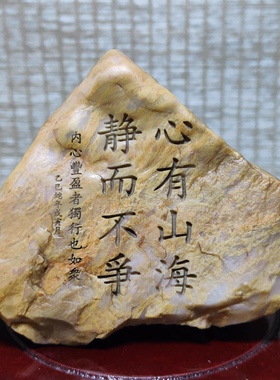 心有山海
静而不爭
內心豐盈者獨行也如眾